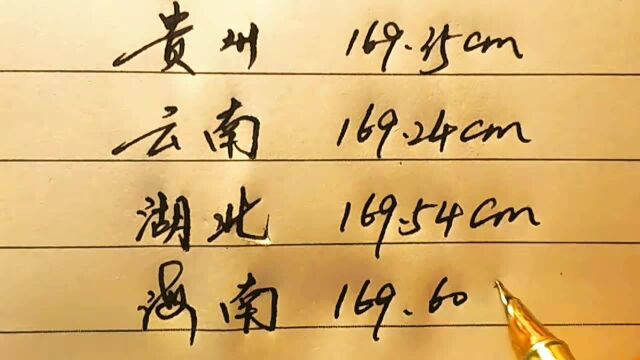 貴州
云南 169.24cm
湖北 169.54cm
海南 169.60